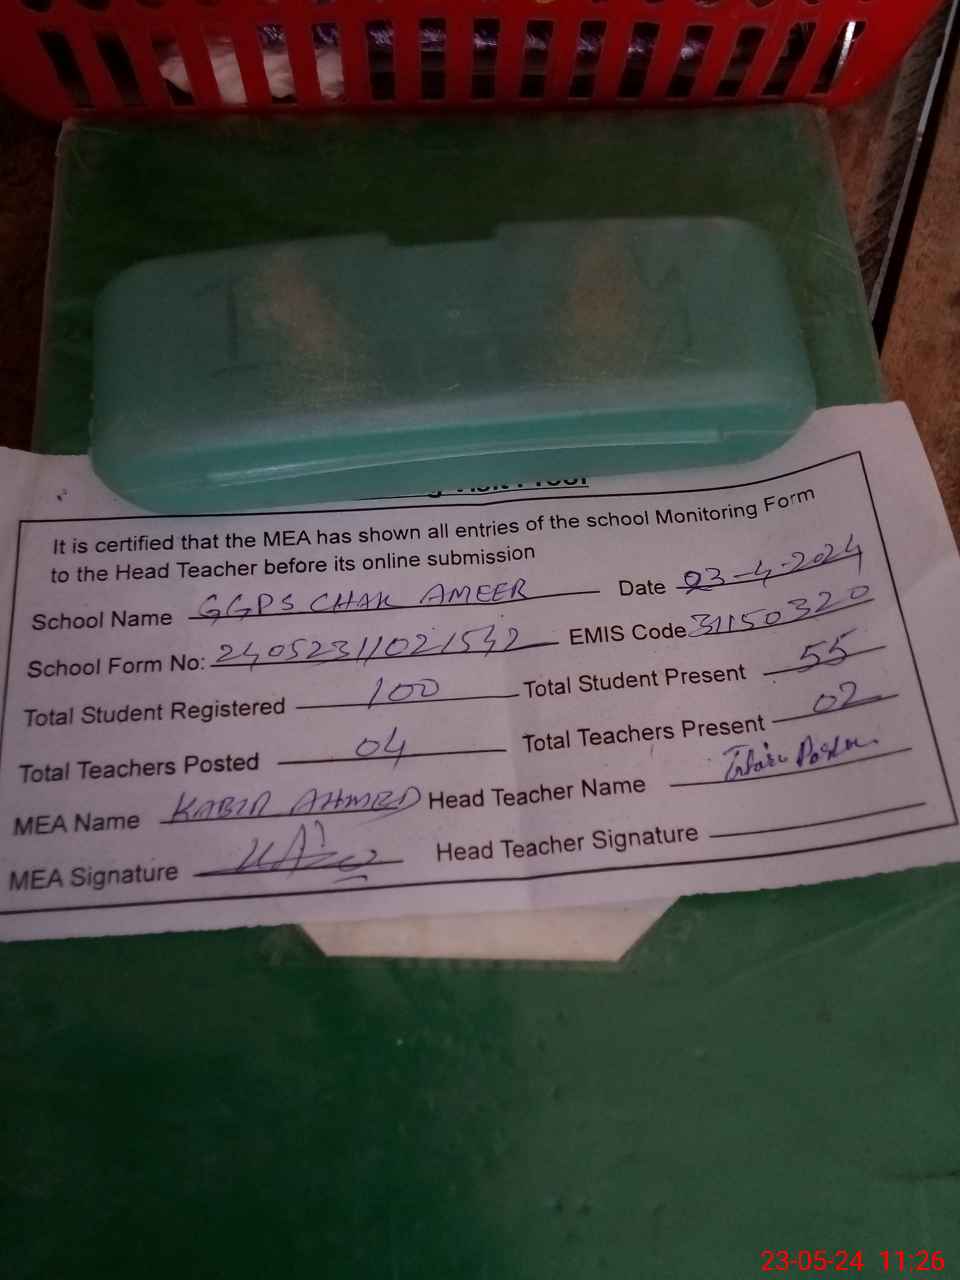 It is certified that the MEA has shown all entries of the school Monitoring Form
to the Head Teacher before its online submission
School Name GGPS CHAK AMEER Date 03-4-2024
School Form No: 24052311021542 EMIS Code 31150320
Total Student Registered 100 Total Student Present 55
Total Teachers Posted 04 Total Teachers Present 02
MEA Name KABIR AHMED Head Teacher Name
MEA Signature Head Teacher Signature
23-05-24 11:26